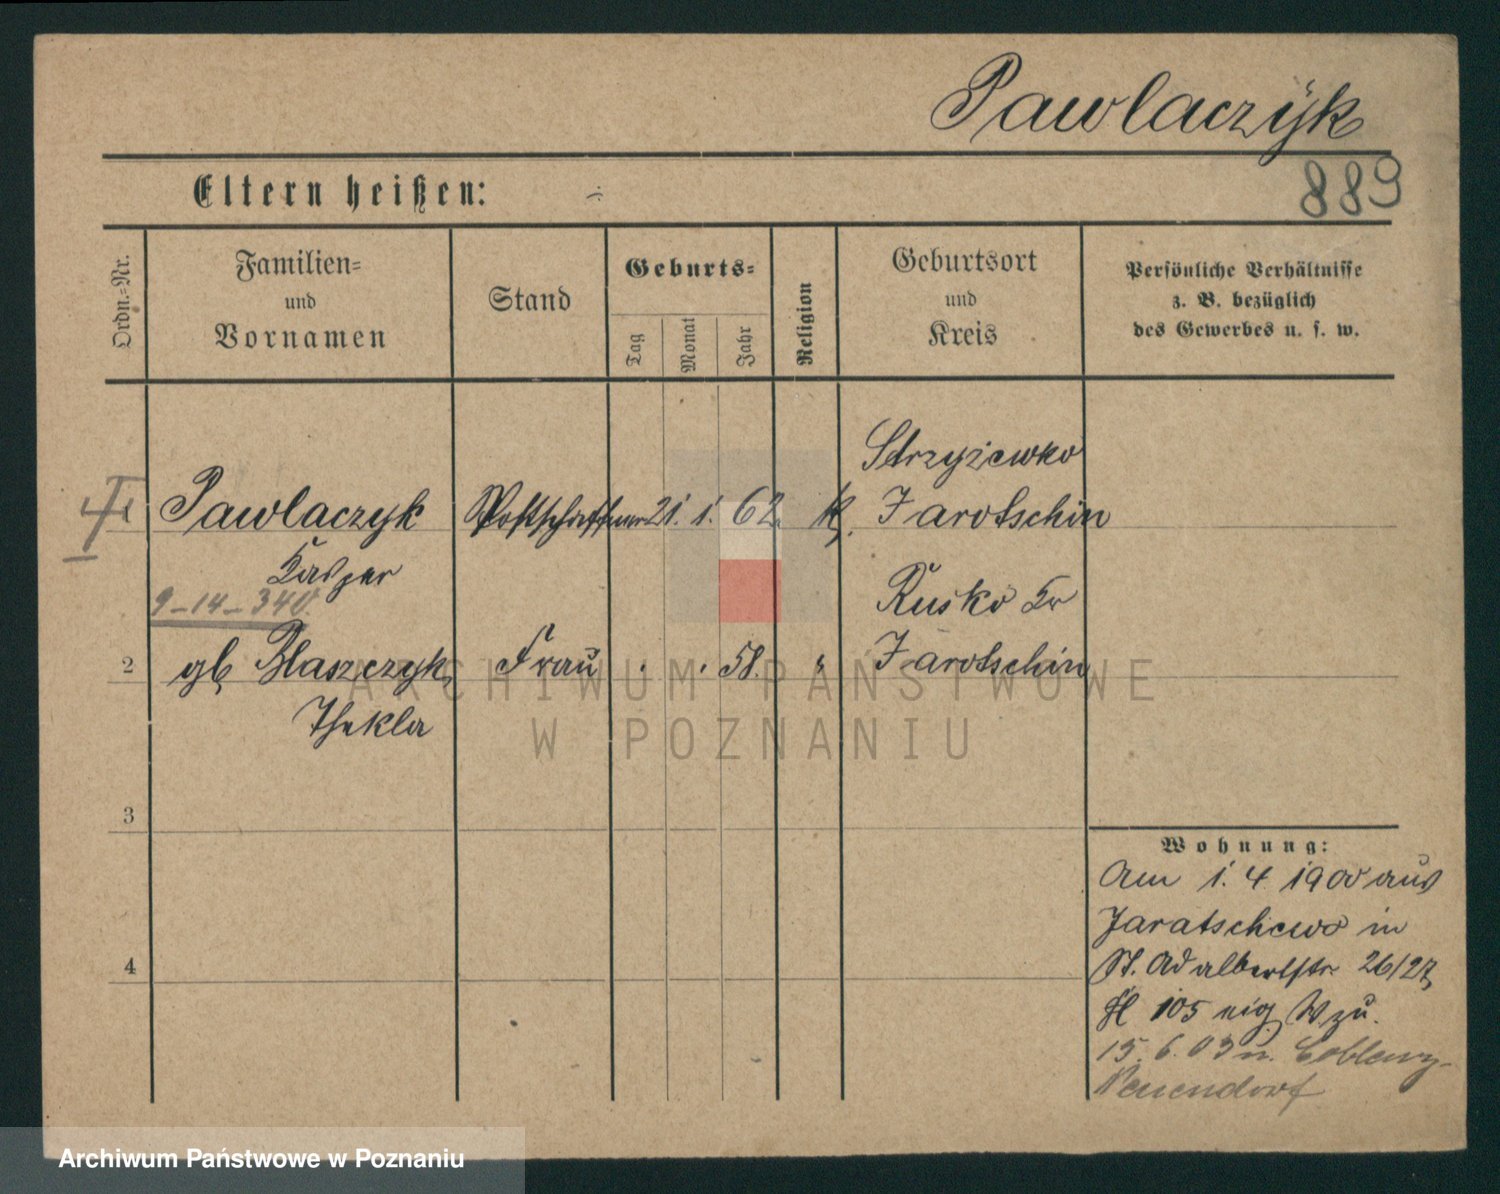 Pawlaczÿk
889
Eltern heißen: -
Ordn.-Nr.
Familien-
und
Vornamen
Stand
Geburts-
Tag
Monat
Jahr
Religion
Geburtsort
und
Kreis
Persönliche Verhältnisse
z. B. bezüglich
des Gewerbes u. s. w.
Strzyżewko
1 Pawlaczyk Postschaffner 21. 1. 62 k. Jarotschin
Kasper
9-14-340
Rusko Kr
2 gb Blaszczyk Frau . . 58. " Jarotschin
Thekla
3
4
Wohnung:
Am 1. 4 1900 aus
Jaratschewo in
St. Adalbertstr 26/27
105 eig Wzu.
15. 6. 03 n. Coblenz-
Neuendorf
ARCHIWUM PAŃSTWOWE
W POZNANIU
Archiwum Państwowe w Poznaniu